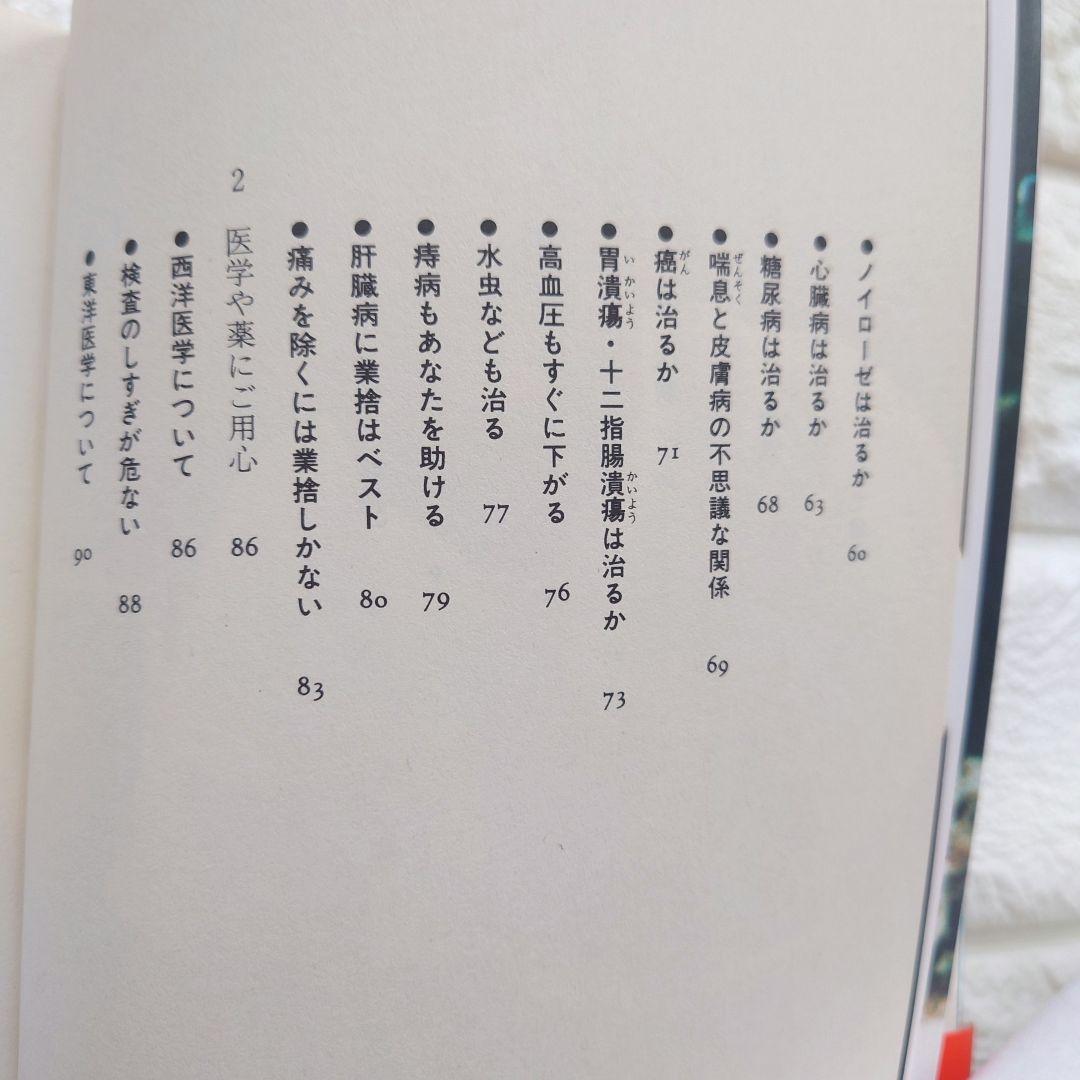 ●ノイローゼは治るか 60
●心臓病は治るか 63
●糖尿病は治るか 68
●喘息と皮膚病の不思議な関係 69
ぜんそく
●癌は治るか 71
がん
●胃潰瘍・十二指腸潰瘍は治るか 73
い かいよう かいよう
●高血圧もすぐに下がる 76
●水虫なども治る 77
●痔病もあなたを助ける 79
●肝臓病に業捨はベスト 80
●痛みを除くには業捨しかない 83
2 医学や薬にご用心 86
●西洋医学について 86
●検査のしすぎが危ない 88
●東洋医学について 90